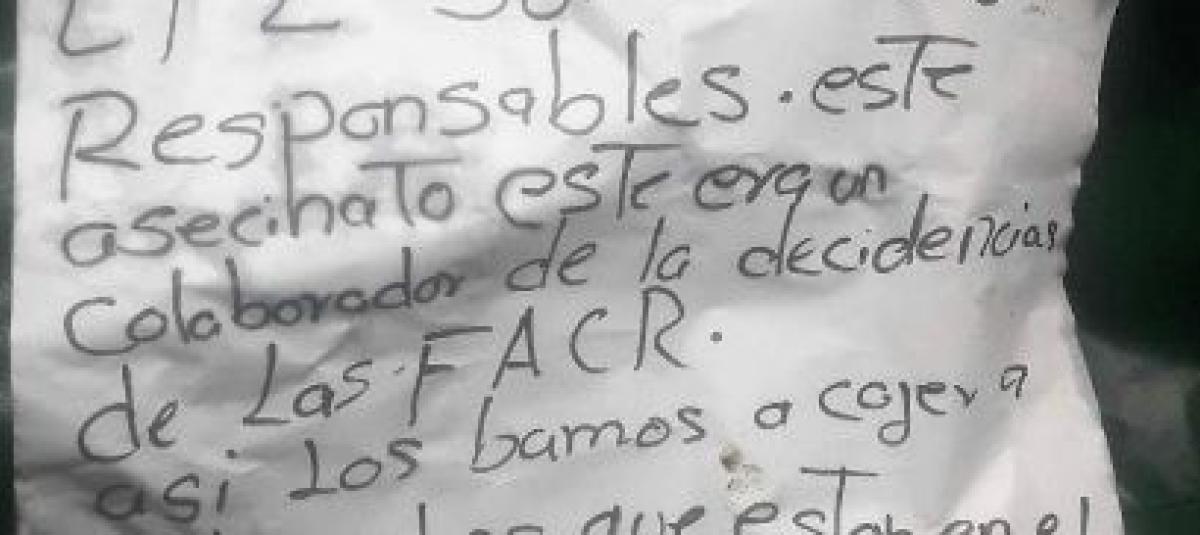 Responsables. este
asecinato este era un
colaborador de la decidencias
de Las. FACR.
asi Los bamos a cojer a
los que estan en el